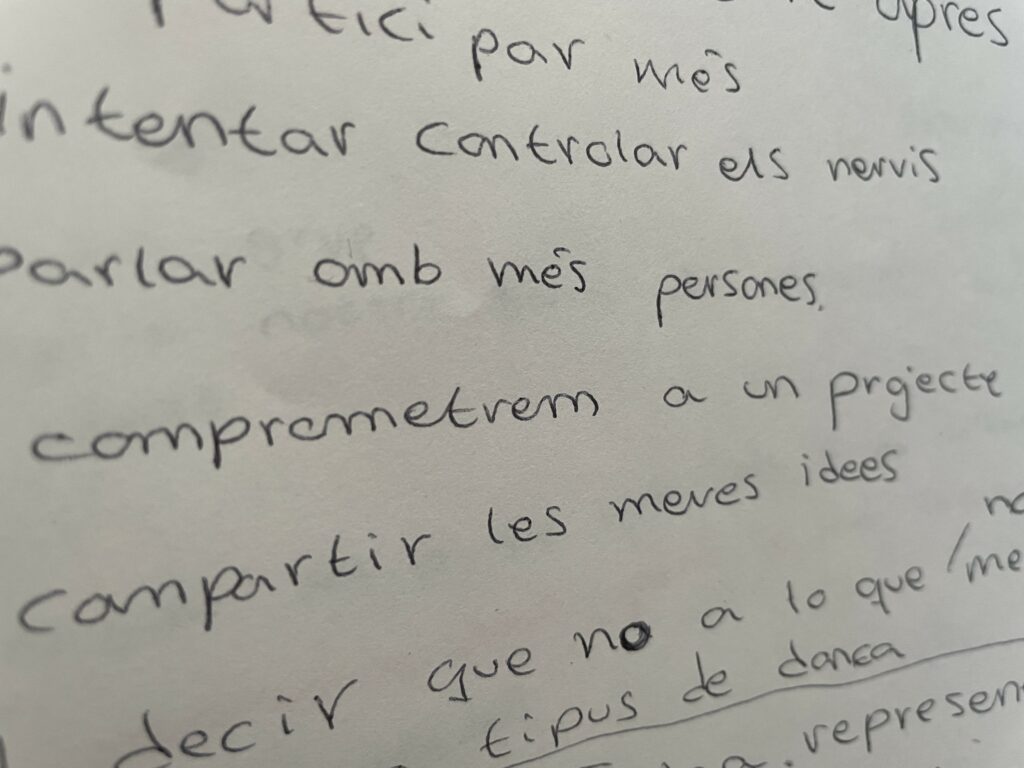 apres
Partici par més
intentar controlar els nervis
parlar amb més persones.
comprometrem a un prgjecte
compartir les meves idees
decir que no a lo que /me
tipus de danca
represen